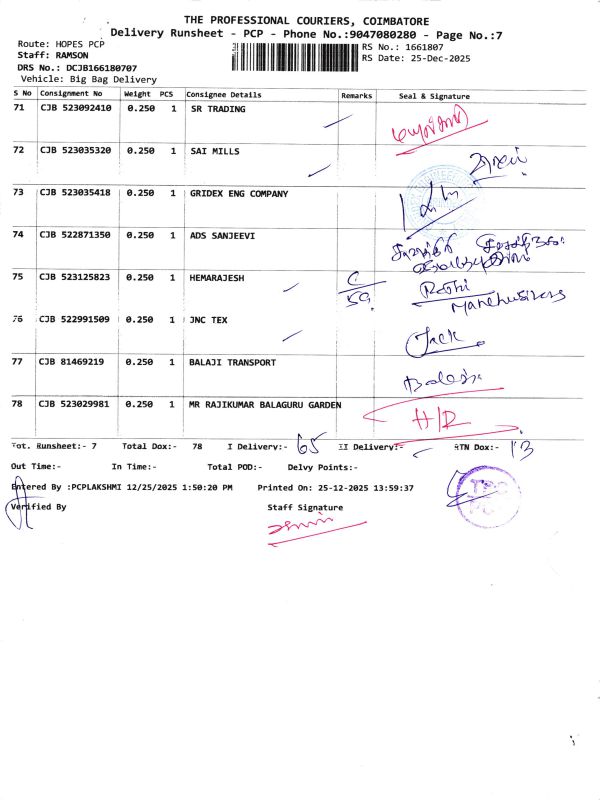 THE PROFESSIONAL COURIERS, COIMBATORE
Delivery Runsheet - PCP - Phone No.:9047080280 - Page No.:7
Route: HOPES PCP
RS No.: 1661807
Staff: RAMSON
RS Date: 25-Dec-2025
DRS No.: DCJB166180707
Vehicle: Big Bag Delivery
S No Consignment No Weight PCS Consignee Details Remarks Seal & Signature
71 CJB 523092410 0.250 1 SR TRADING
72 CJB 523035320 0.250 1 SAI MILLS
73 CJB 523035418 0.250 1 GRIDEX ENG COMPANY
74 CJB 522871350 0.250 1 ADS SANJEEVI
75 CJB 523125823 0.250 1 HEMARAJESH
76 CJB 522991509 0.250 1 JNC TEX Jack
77 CJB 81469219 0.250 1 BALAJI TRANSPORT
78 CJB 523029981 0.250 1 MR RAJIKUMAR BALAGURU GARDEN H/R
Tot. Runsheet:- 7 Total Dox:- 78 I Delivery:- 65 II Delivery:- RTN Dox:- 13
Out Time:- In Time:- Total POD:- Delvy Points:-
Entered By :PCPLAKSHMI 12/25/2025 1:50:20 PM Printed On: 25-12-2025 13:59:37
Verified By Staff Signature